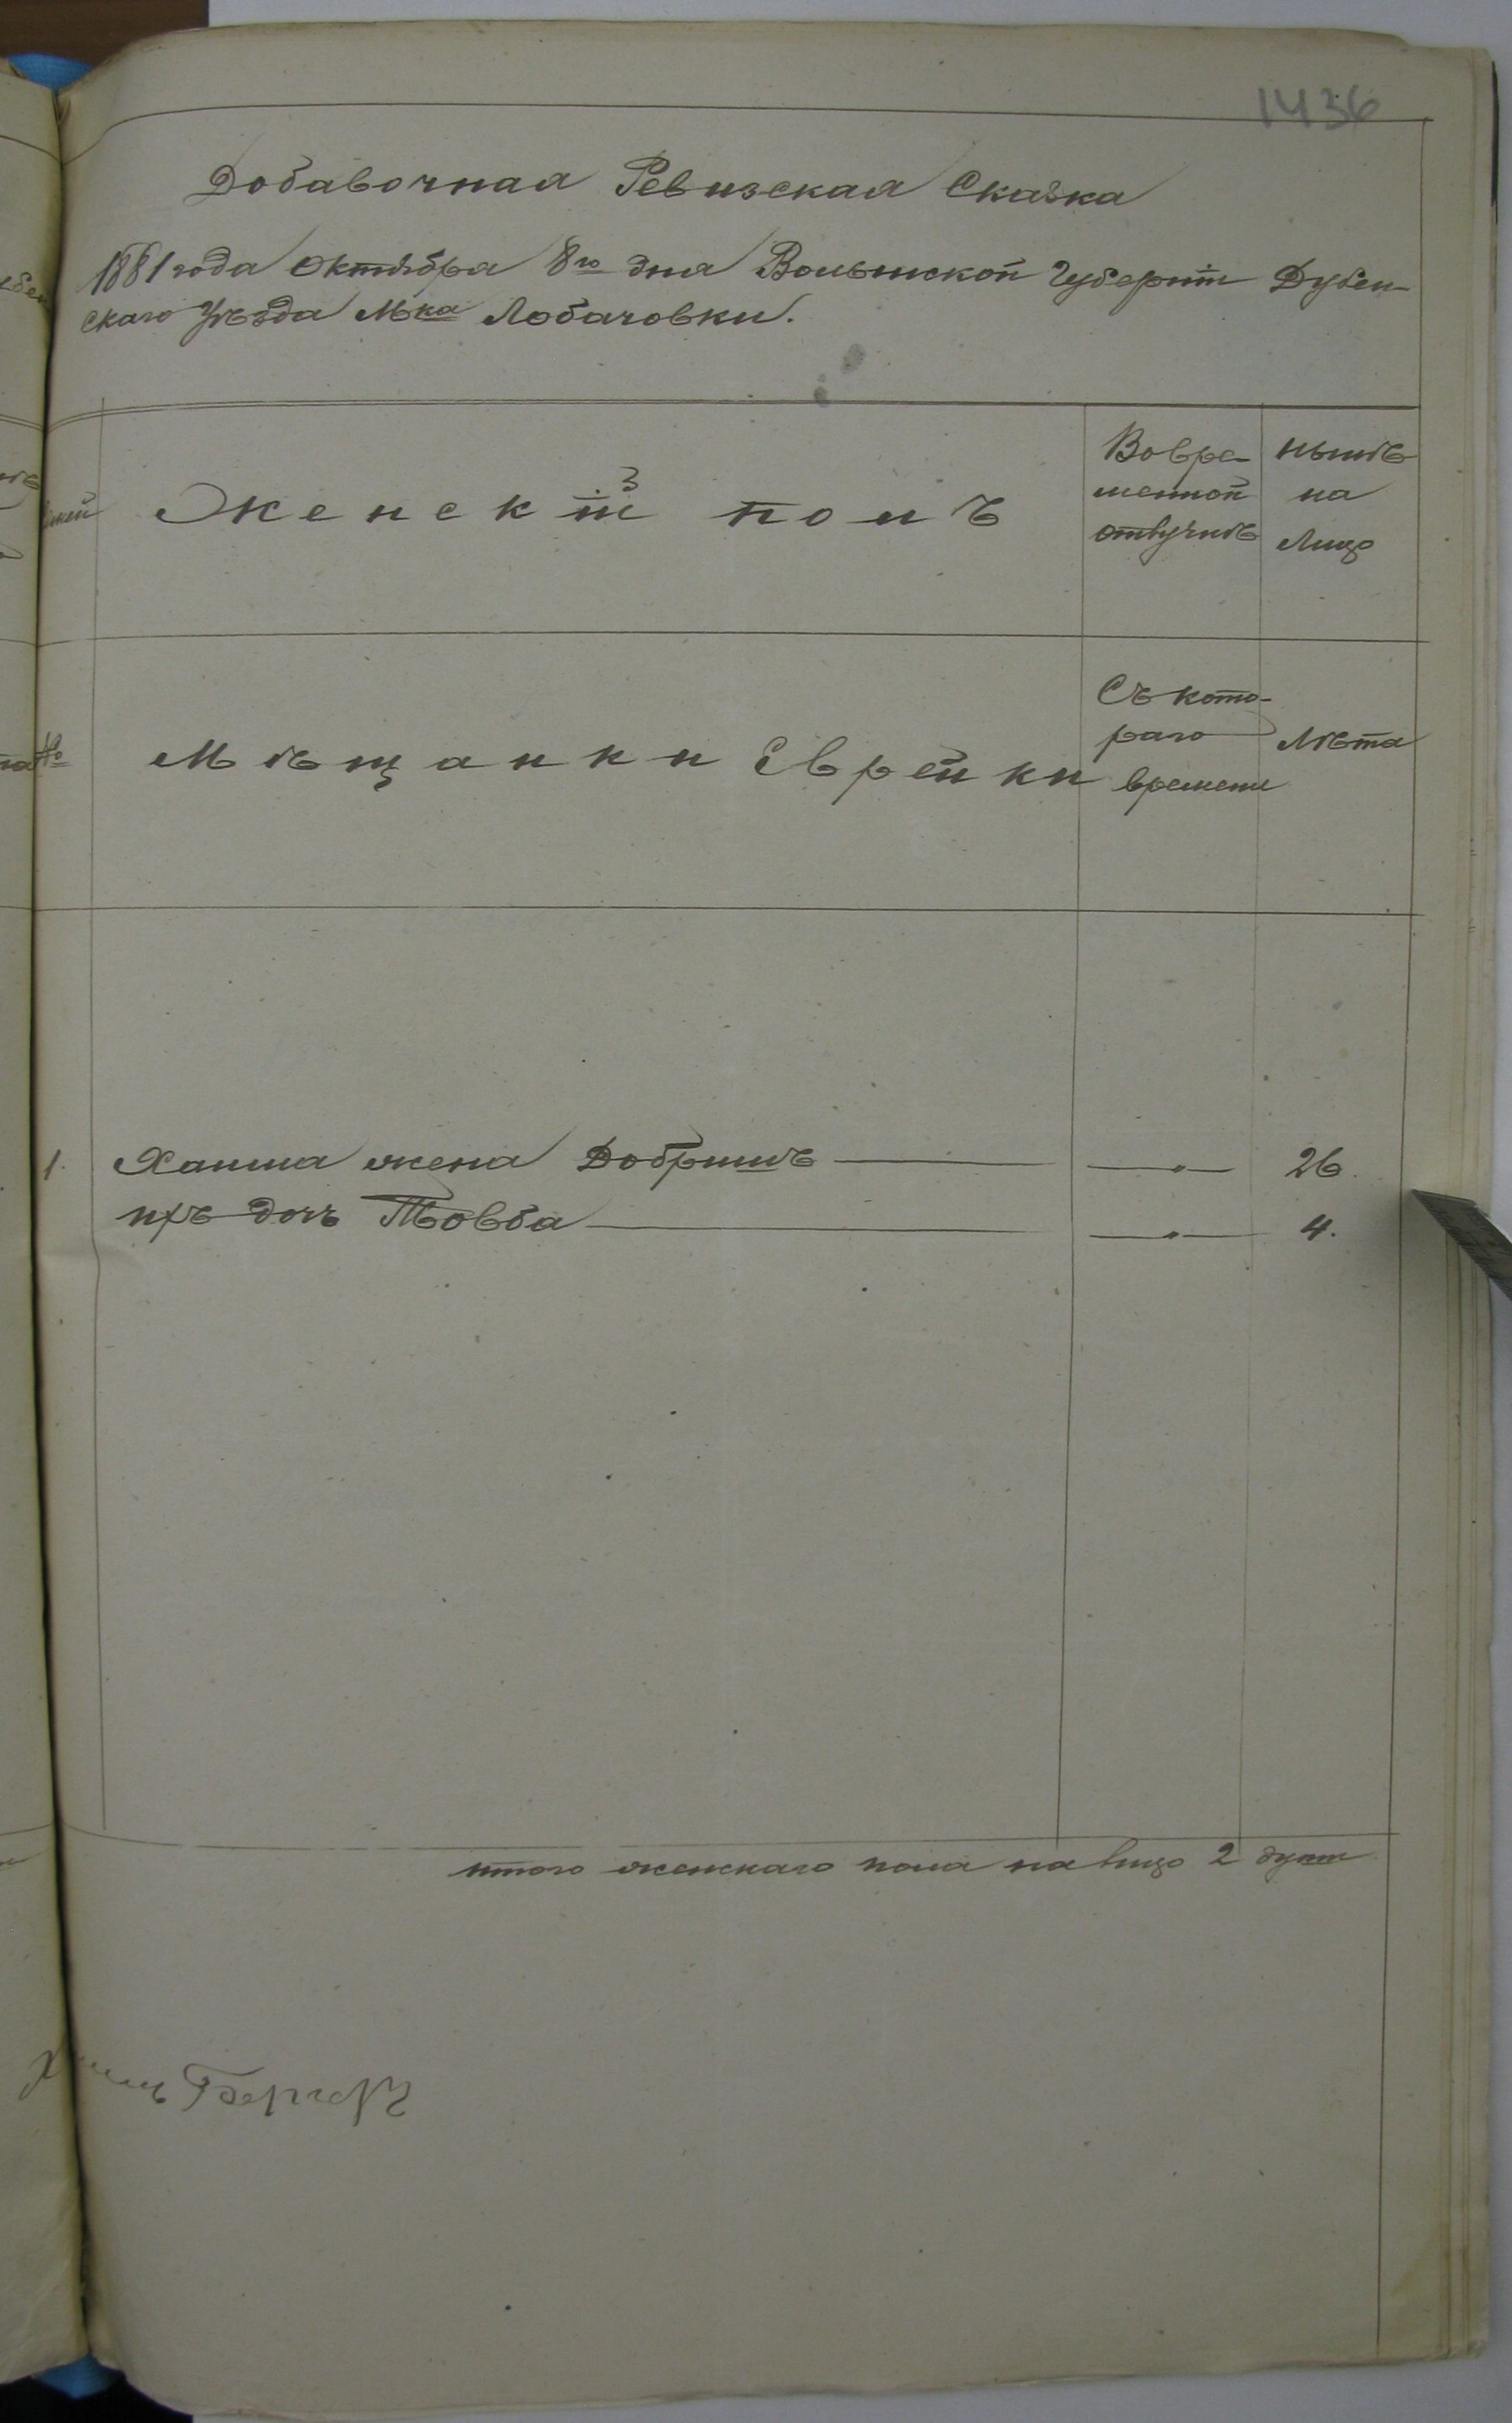 1436
Добавочная Ревизская Сказка
1881 года Октября 8го дня Волынской Губернiи Дубен-
скаго Уѣзда Мка Лобачовки.
Женскiй полъ
Вовре-
менной
отлучкѣ
нынѣ
на
Лицо
№
Мѣщанки Еврейки
Съ кото-
раго
времени
Лѣта
1. Ханна жена Добришъ — " — 26.
ихъ дочь Товба — " — 4.
итого женскаго пола на лицо 2 души
Бергеръ